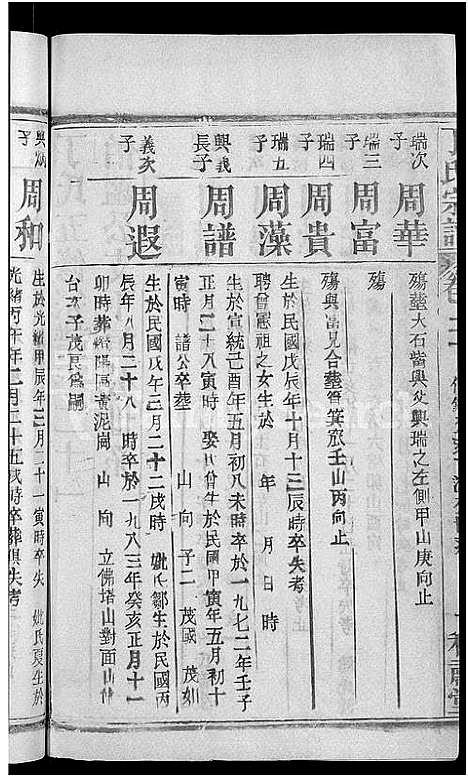 氏宗譜
卷二
瑞次子
周華
殤塟大石觜興父興瑞之左側甲山庚向止
瑞三子
周富
殤
瑞四子
周貴
殤與富兄合塟簣箕窊壬山丙向止
瑞五子
周藻
生於民國戊辰年十月十三辰時卒失考
聘曾憲祖之女生於 年 月 日 時
興義長子
周譜
生於宣統己酉年五月初八未時卒於一九七二年壬子
正月二十八寅時 娶 生於民國甲寅年五月初十
寅時 譜公卒塟 山 向子二 茂國 茂如
義次子
周遐
生於民國戊午年三月二十二戌時 妣氏鄒生於民國丙
辰年八月二十八 時卒於一九八三年癸亥正月十一
卯時葬 陽區黃泥崗 山 向 立佛塔山對面山
台 次子茂良為嗣
興炳子
周和
生於光緒甲辰年三月二十一寅時卒失 妣氏夏生於
光緒丙午年二月二十五戌時卒葬俱失考